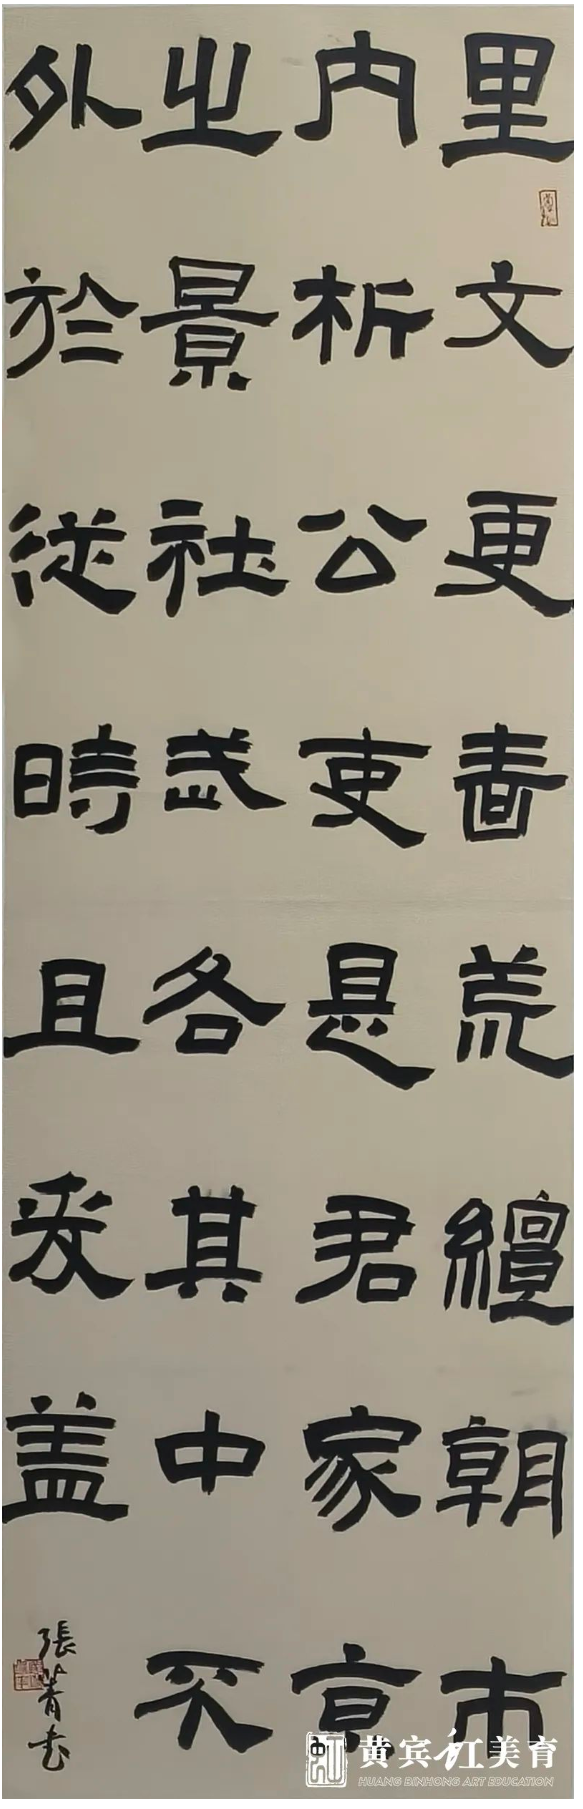 里文更荒繵朝市
内析公吏是君家京
之景社武各其中不
外於從時且爰盖
張菁书
黄宾虹美育
HUANG BINHONG ART EDUCATION